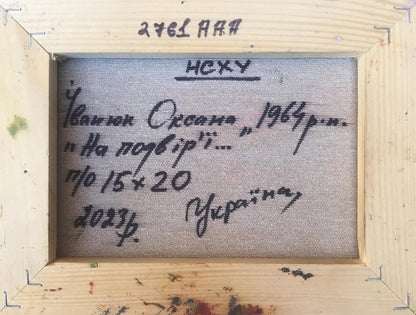 2761 ААА
НСХУ
Іванюк Оксана „ 1964 р.н.
"На подвір'ї...
п/о 15x20
2023р.
Україна,